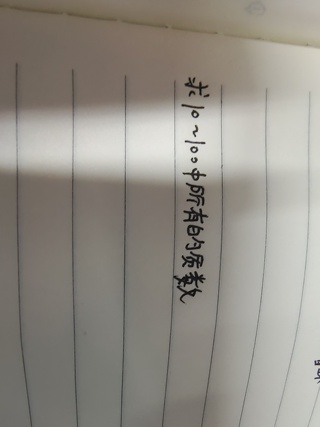 求10~100中所有的质数